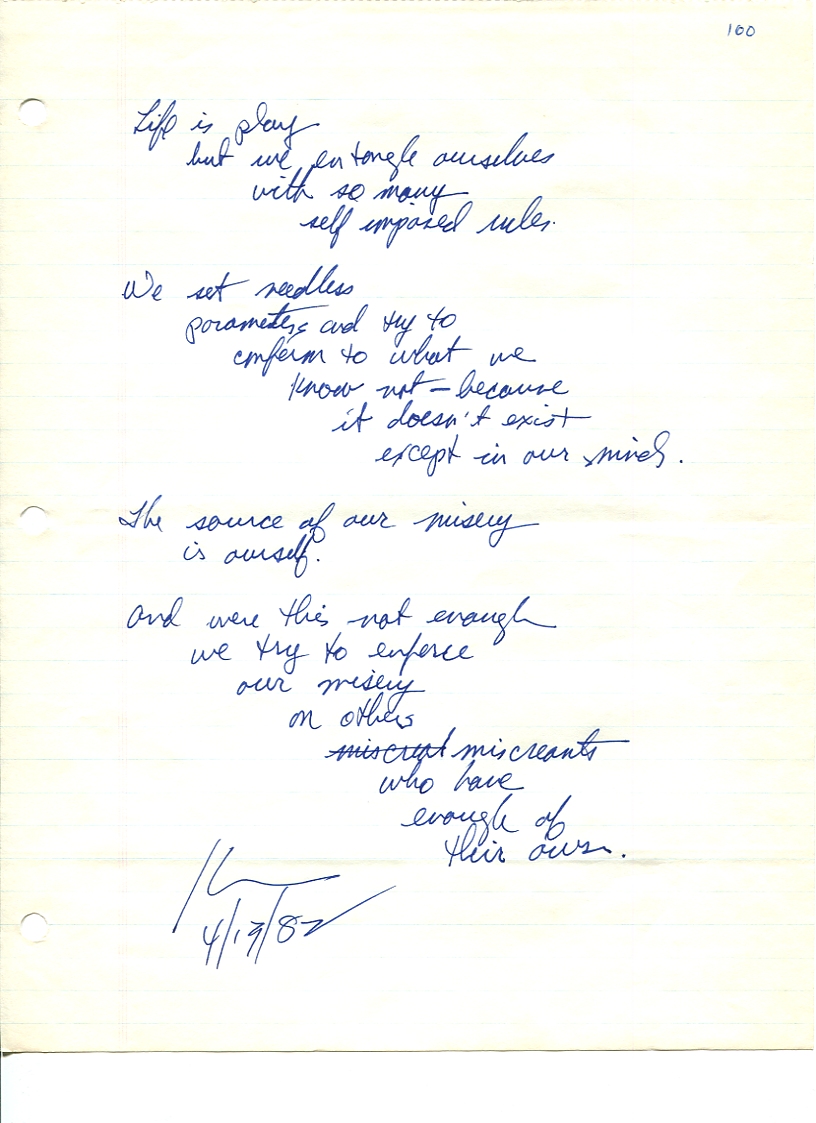 100
Life is play
but we entangle ourselves
with so many
self imposed rules.
We set needless
parameters and try to
conform to what we
know not – because
it doesn't exist
except in our minds.
The source of our misery
is ourself.
And were this not enough
we try to enforce
our misery
on others
miscreants
who have
enough of
their own.
4/19/82